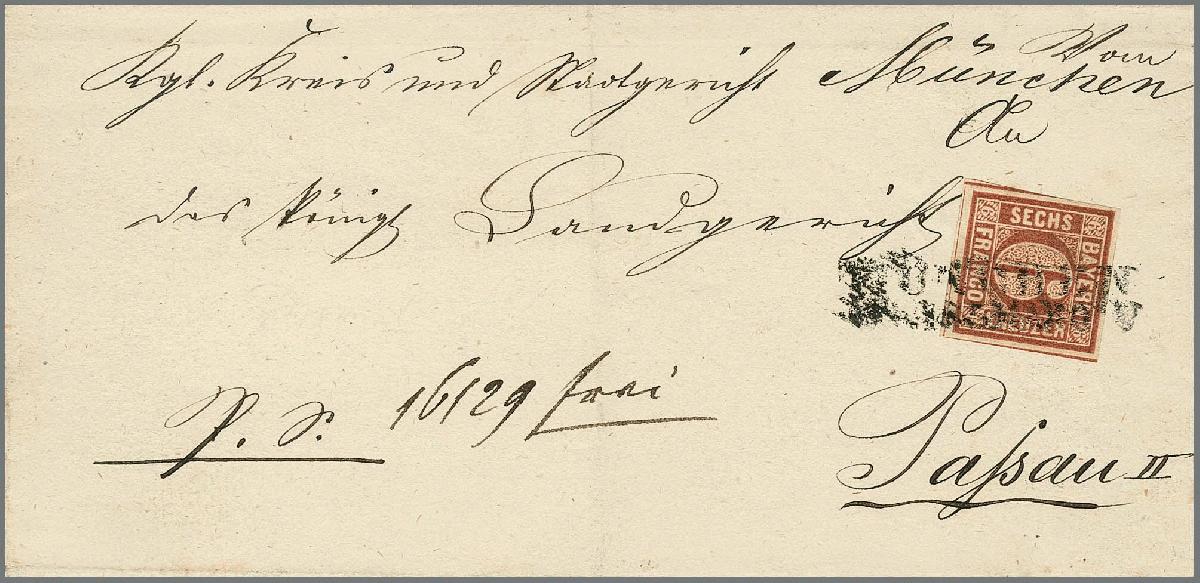 Vom
Kgl. Kreis und Stadtgericht München
An
das königl Landgericht
SECHS
BAYERN
FRANCO
KREUZER
6
MÜNCHEN
P. S. 16129 frei
Paſsau II